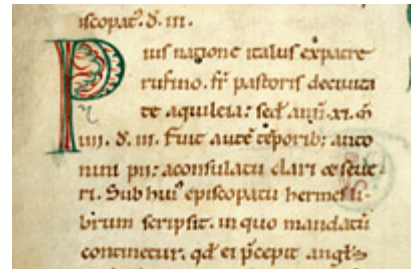 iscopat᷒. d̄. iii.
Pius natione italus expatre
rufino. fr̄ pastoris decivita
te aquileia: sed̄ ann̄. xi. m̄
iiii. d̄. iii. fuit aute tēporib; anto
nini pii: aconsulatu clari &seue
ri. Sub hui᷒ episcopatu hermes li-
brum scripsit. in quo mandatū
continetur. qd̄ ei p̄cepit angl̄s